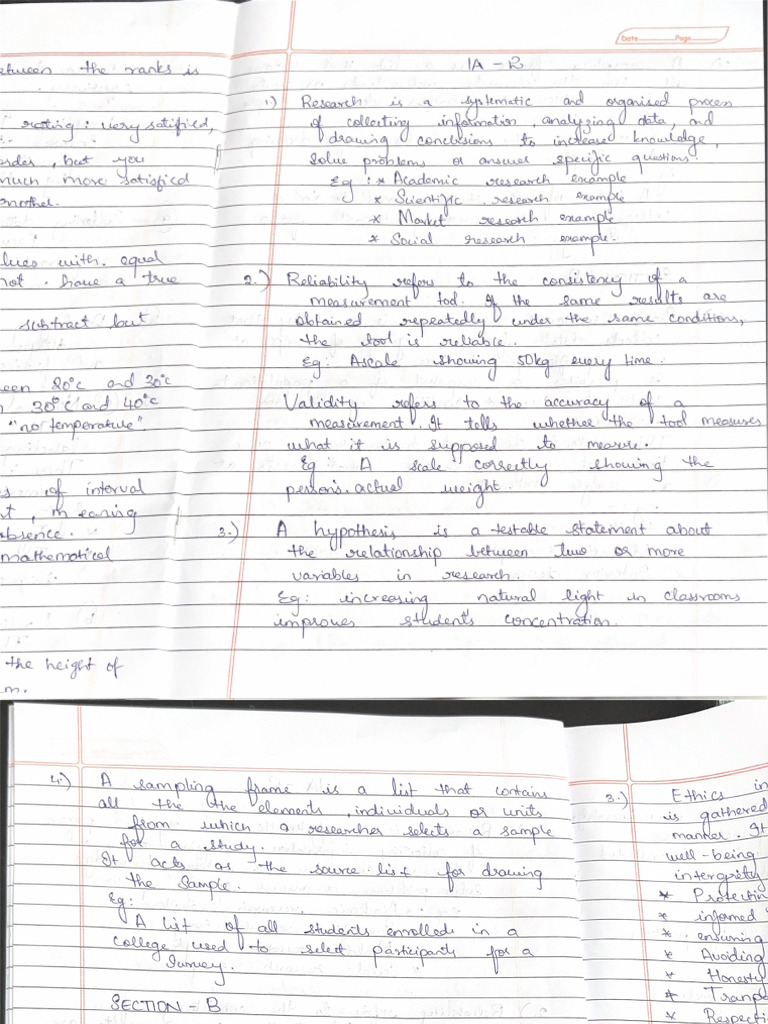 etween the ranks is
rating: very satified,
order, but you
much more satisfied
another.
lues with equal
not have a true
subtract but
een 20°c and 30°c
30°c and 40°c
"no temperature"
s of interval
t, meaning
absence.
mathematical
the height of
m.
Date Page
IA - 2
1) Research is a systematic and organised process
of collecting information, analyzing data, and
drawing conclusions to increase knowledge,
solve problems or answer specific questions.
Eg : * Academic research example
* Scientific research example
* Market research example
* Social research example.
2.) Reliability refers to the consistency of a
measurement tool. If the same results are
obtained repeatedly under the same conditions,
the tool is reliable.
Eg: A scale showing 50kg every time.
Validity refers to the accuracy of a
measurement. It tells whether the tool measures
what it is supposed to measure.
Eg: A scale correctly showing the
person's actual weight.
3.) A hypothesis is a testable statement about
the relationship between two or more
variables in research.
Eg: increasing natural light in classrooms
improves student's concentration.
4.) A sampling frame is a list that contains
all the the elements, individuals or units
from which a researcher selects a sample
for a study.
It acts as the source list for drawing
the sample.
Eg:
A list of all students enrolled in a
college used to select participants for a
survey.
SECTION - B
3.) Ethics in
is gathered
manner. It
well-being
intergrity
* Protectin
* informed
* ensuring
* Avoiding
* Honesty
* Tranpa
* Respecti